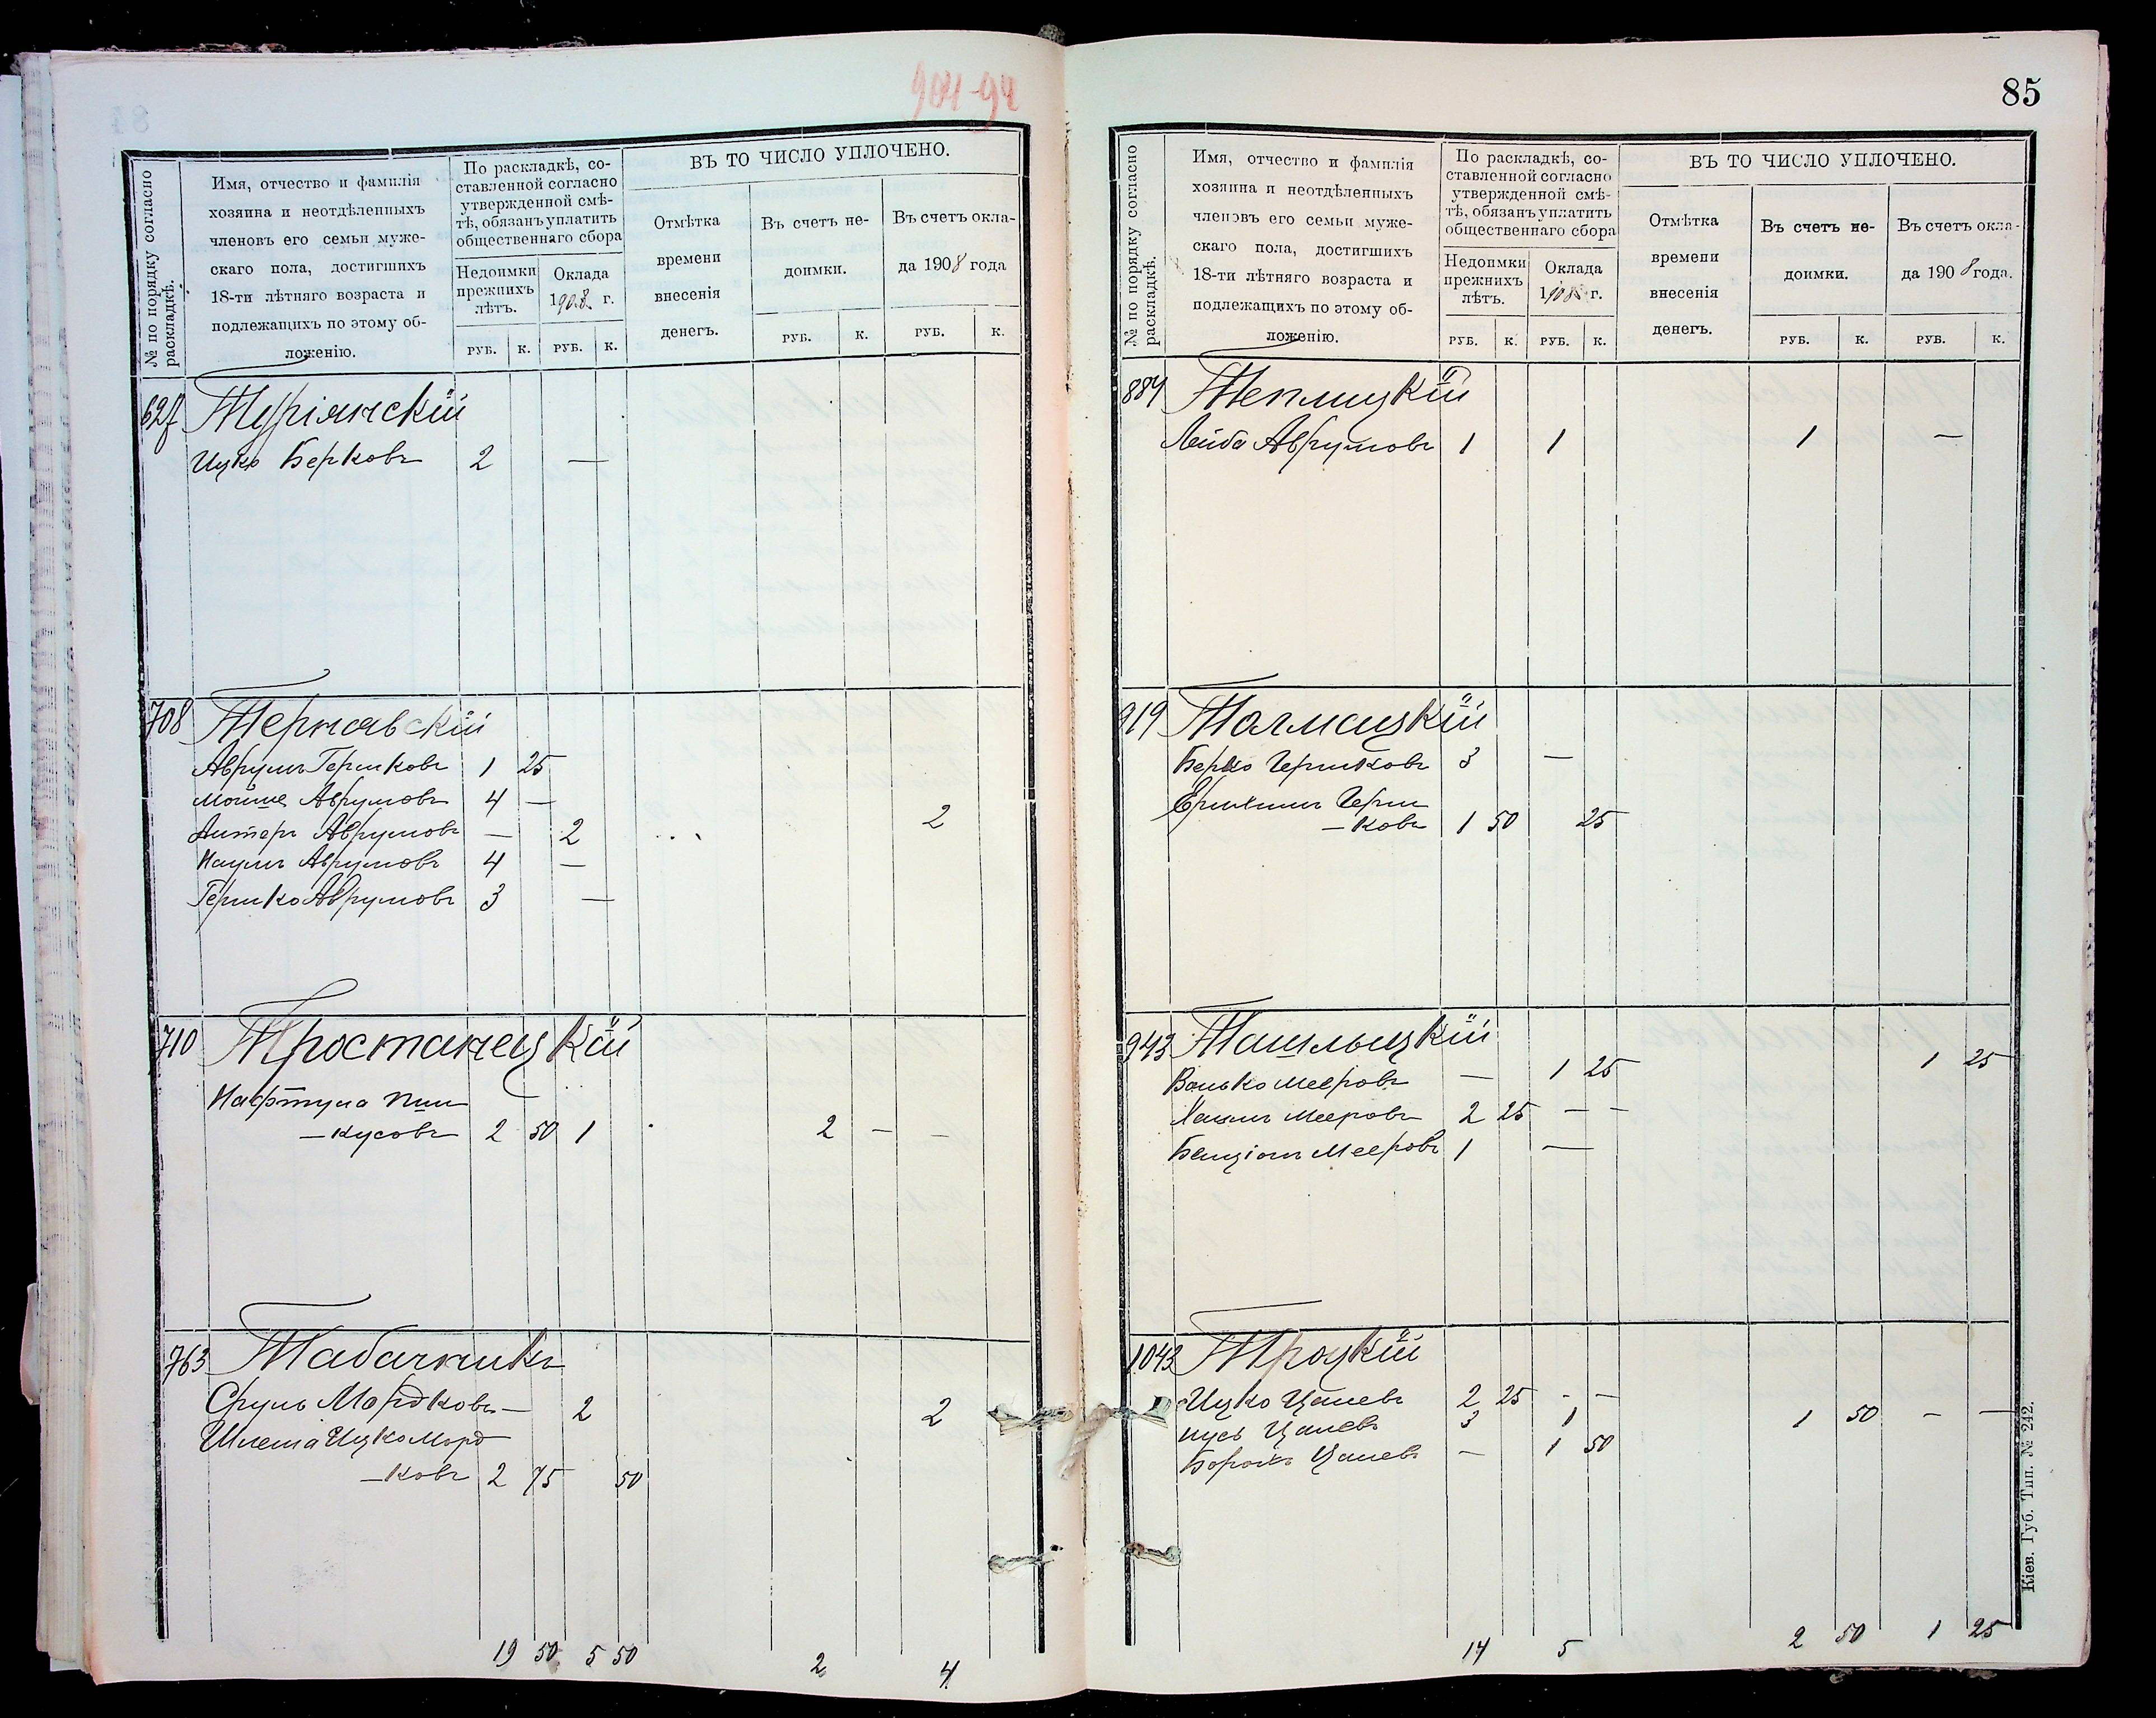 904-94
№ по порядку согласно раскладкѣ.
Имя, отчество и фамилія
хозяина и неотдѣленныхъ
членовъ его семьи муже-
скаго пола, достигшихъ
18-ти лѣтняго возраста и
подлежащихъ по этому об-
ложенію.
По раскладкѣ, со-
ставленной согласно
утвержденной смѣ-
тѣ, обязанъ уплатить
общественнаго сбора
Недоимки
прежнихъ
лѣтъ.
Оклада
1908 г.
РУБ. К. РУБ. К.
ВЪ ТО ЧИСЛО УПЛОЧЕНО.
Отмѣтка
времени
внесенія
денегъ.
Въ счетъ не-
доимки.
Въ счетъ окла-
да 1908 года
РУБ. К. РУБ. К.
627 Туріянскій
Ицко Берковъ 2 —
708 Тернавскій
Аврумъ Гершковъ 1 25
Мойше Аврумовъ 4 —
Антеръ Аврумовъ — 2 2
Наумъ Аврумовъ 4 —
Гершко Аврумовъ 3 —
710 Тростанецкій
Нафтула Пин
—кусовъ 2 50 1 2 — —
763 Табачникъ
Сруль Мордковъ — 2 2
Шлема Ицко Морд
—ковъ 2 75 50
19 50 5 50 2 4
85
№ по порядку согласно раскладкѣ.
Имя, отчество и фамилія
хозяина и неотдѣленныхъ
членовъ его семьи муже-
скаго пола, достигшихъ
18-ти лѣтняго возраста и
подлежащихъ по этому об-
ложенію.
По раскладкѣ, со-
ставленной согласно
утвержденной смѣ-
тѣ, обязанъ уплатить
общественнаго сбора
Недоимки
прежнихъ
лѣтъ.
Оклада
1908 г.
РУБ. К. РУБ. К.
ВЪ ТО ЧИСЛО УПЛОЧЕНО.
Отмѣтка
времени
внесенія
денегъ.
Въ счетъ не-
доимки.
Въ счетъ окла-
да 1908 года.
РУБ. К. РУБ. К.
884 Теплицкій
Лейба Аврумовъ 1 1 1 —
919 Талмацкій
Берко Гершковъ 3 —
Ерихимъ Герш
—ковъ 1 50 25
943 Ташлыцкій
Волько Мееровъ — 1 25 1 25
Хаимъ Мееровъ 2 25 — —
Бенціонъ Мееровъ 1 —
1043 Троцкій
Ицко Цалевъ 2 25 - —
Нусь Цалевъ 3 1 1 50 — —
Борохъ Цалевъ — 1 50
14 5 2 50 1 25
Кіев. Губ. Тип. № 242.